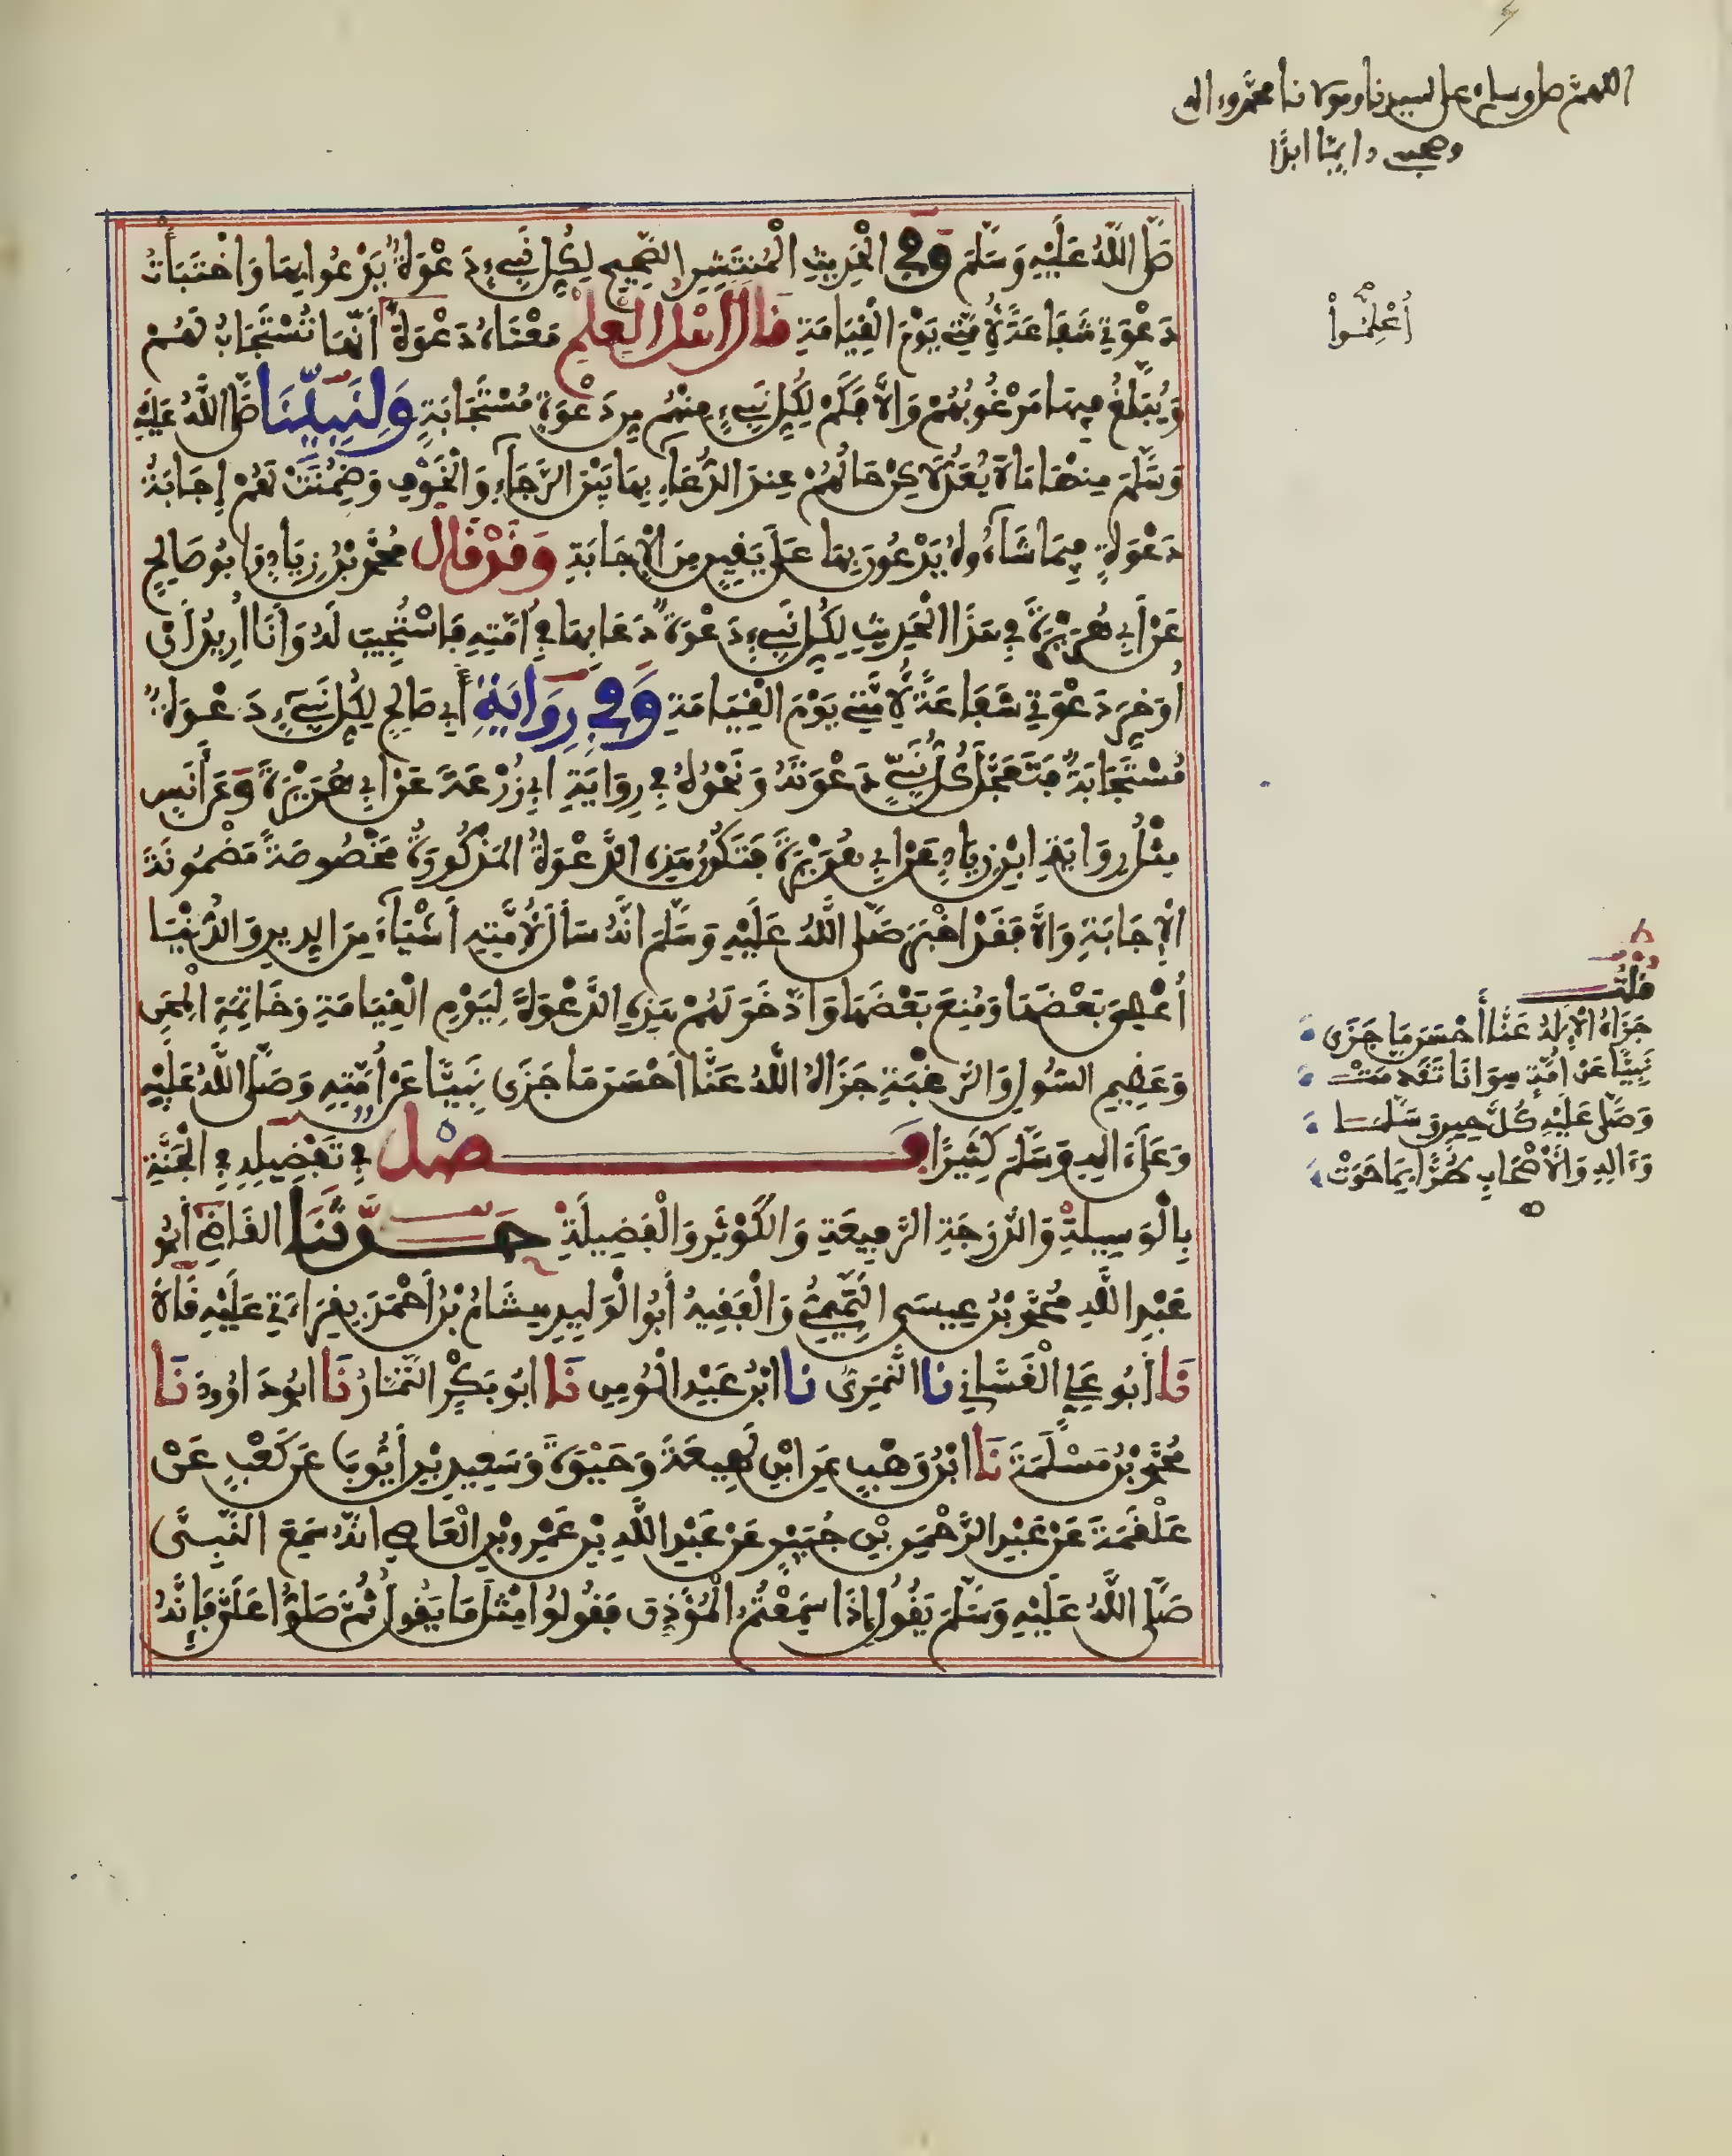 اللهم صل وسلم على سيدنا ومولانا محمد وءاله
وصحبه دايما ابدا
صَلَّى اللَّهُ عَلَيْهِ وَسَلَّمَ وَفِي الْحَدِيثِ الْمُنتَشِرِ الصَّحِيحِ لِكُلِّ نَبِيءٍ دَعْوَةٌ يَدْعُوا بِهَا وَاخْتَبَأْتُ
دَعْوَتِي شَفَاعَةً لِأُمَّتِي يَوْمَ الْقِيَامَةِ قَالَ أَهْلُ الْعِلْمِ مَعْنَاهُ دَعْوَةٌ أَنَّهَا تُسْتَجَابُ لَهُمْ
أُعْلِمُوا
وَيُبَلَّغُ فِيهَا مَرْغُوبُهُمْ وَإِلَّا فَكَمْ لِكُلِّ نَبِيءٍ مِنْهُم مِن دَعْوَةٍ مُسْتَجَابَةٍ وَلِنَبِيِّنَا صَلَّى اللَّهُ عَلَيْهِ
وَسَلَّمَ مِنْهَا مَا لَا يُعَدُّ لَكِنْ حَالُهُمْ عِندَ الدُّعَاءِ بِهَا بَيْنَ الرَّجَاءِ وَالْخَوْفِ وَضُمِنَتْ لَهُمْ إِجَابَةُ
دَعْوَةٍ فِيمَا شَاءُوهُ يَدْعُونَ بِهَا عَلَى يَقِينٍ مِنَ الْإِجَابَةِ وَقَدْ قَالَ مُحَمَّدُ بْنُ زِيَادٍ وَأَبُو صَالِحٍ
عَنْ أَبِي هُرَيْرَةَ فِي هَذَا الْحَدِيثِ لِكُلِّ نَبِيءٍ دَعْوَةٌ دَعَا بِهَا فِي أُمَّتِهِ فَاسْتُجِيبَ لَهُ وَأَنَا أُرِيدُ أَنْ
أُوَخِّرَ دَعْوَتِي شَفَاعَةً لِأُمَّتِي يَوْمَ الْقِيَامَةِ وَفِي رِوَايَةِ أَبِي صَالِحٍ لِكُلِّ نَبِيءٍ دَعْوَةٌ
مُسْتَجَابَةٌ فَتَعَجَّلَ كُلُّ نَبِيٍّ دَعْوَتَهُ وَنَحْوُهُ فِي رِوَايَةِ أَبِي زُرْعَةَ عَنْ أَبِي هُرَيْرَةَ وَعَنْ أَنَسٍ
مِثْلُ رِوَايَةِ ابْنِ زِيَادٍ عَنْ أَبِي هُرَيْرَةَ فَتَكُونُ هَذِهِ الدَّعْوَةُ الْمَذْكُورَةُ مَخْصُوصَةً مَضْمُونَةَ
الْإِجَابَةِ وَإِلَّا فَقَدْ أَخْبَرَ صَلَّى اللَّهُ عَلَيْهِ وَسَلَّمَ أَنَّهُ سَأَلَ لِأُمَّتِهِ أَشْيَاءَ مِنَ الدِّينِ وَالدُّنْيَا
أُعْطِيَ بَعْضَهَا وَمُنِعَ بَعْضَهَا وَادَّخَرَ لَهُمْ هَذِهِ الدَّعْوَةَ لِيَوْمِ الْقِيَامَةِ وَخَاتِمَةِ الْمِحَنِ
وَعَظِيمِ السُّولِ وَالرَّغْبَةِ جَزَاهُ اللَّهُ عَنَّا أَحْسَنَ مَا جَزَى نَبِيًّا عَنْ أُمَّتِهِ وَصَلَّى اللَّهُ عَلَيْهِ
وَعَلَى ءَالِهِ وَسَلَّمَ كَثِيرًا فَصْلٌ فِي تَفْضِيلِهِ فِي الْجَنَّةِ
بِالْوَسِيلَةِ وَالدَّرَجَةِ الرَّفِيعَةِ وَالْكَوْثَرِ وَالْفَضِيلَةِ حَدَّثَنَا الْقَاضِي أَبُو
عَبْدِ اللَّهِ مُحَمَّدُ بْنُ عِيسَى التَّمِيمِيُّ وَالْفَقِيهُ أَبُو الْوَلِيدِ هِشَامُ بْنُ أَحْمَدَ بِقِرَاءَتِي عَلَيْهِ قَالَا
نَا أَبُو عَلِيٍّ الْغَسَّانِي نَا النَّمَرِيُّ نَا ابْنُ عَبْدِ الْمُومِنِ نَا أَبُو بَكْرٍ التَّمَّارُ نَا أَبُو دَاوُودَ نَا
مُحَمَّدُ بْنُ مَسْلَمَةَ نَا ابْنُ وَهْبٍ عَنِ ابْنِ لَهِيعَةَ وَحَيْوَةَ وَسَعِيدِ بْنِ أَيُّوبَ عَنْ كَعْبِ عَنْ
عَلْقَمَةَ عَنْ عَبْدِ الرَّحْمَنِ بْنِ جُبَيْرٍ عَنْ عَبْدِ اللَّهِ بْنِ عَمْرِو بْنِ الْعَاصِي أَنَّهُ سَمِعَ النَّبِيَّ
صَلَّى اللَّهُ عَلَيْهِ وَسَلَّمَ يَقُولُ إِذَا سَمِعْتُمُ الْمُؤَذِّنَ فَقُولُوا مِثْلَ مَا يَقُولُ ثُمَّ صَلُّوا عَلَيَّ فَإِنَّهُ
قُلْتُ
جَزَاهُ الْإِلَهُ عَنَّا أَحْسَنَ مَا جَزَى
نَبِيًّا عَنْ أُمَّةٍ
وَصَلَّى عَلَيْهِ كُلَّ حِينٍ وَسَلَّمَا
وَءَالِهِ وَالْأَصْحَابِ طُرًّا بِمَا حَوَتْ